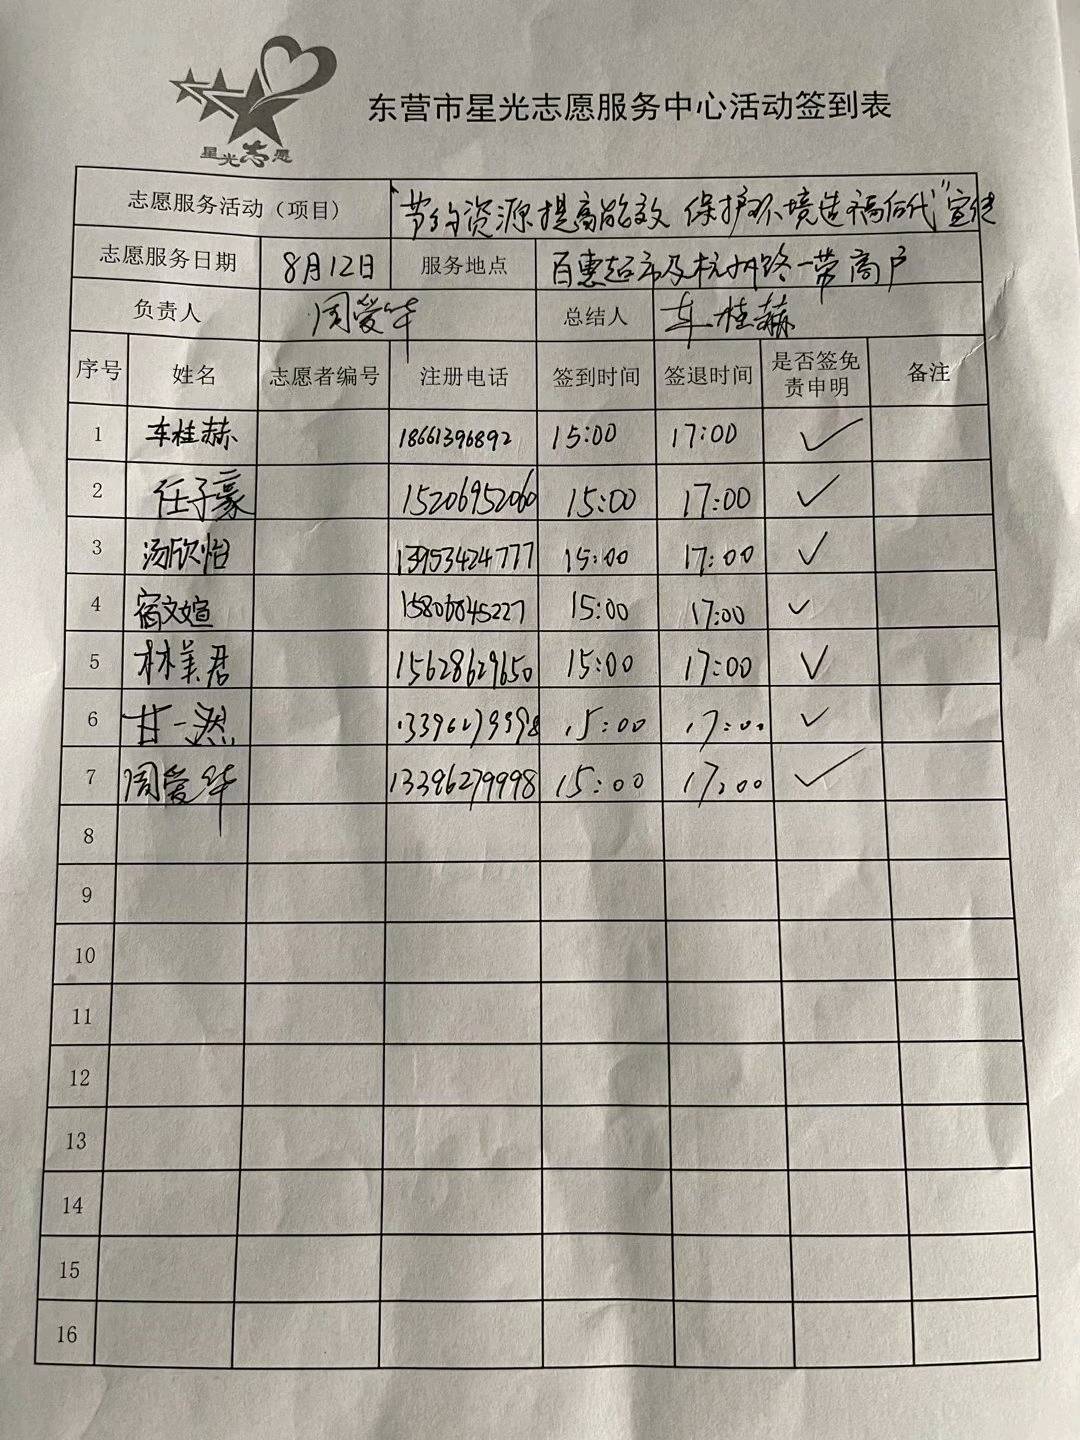 星光志愿
东营市星光志愿服务中心活动签到表
志愿服务活动（项目） "节约资源提高能效 保护环境造福后代"宣传
志愿服务日期 8月12日 服务地点 百惠超市及杭州路一带商户
负责人 周爱华 总结人 车桂赫
序号 姓名 志愿者编号 注册电话 签到时间 签退时间 是否签免责申明 备注
1 车桂赫 18661396892 15:00 17:00 ✓
2 任子豪 15206952060 15:00 17:00 ✓
3 汤欣怡 13953424777 15:00 17:00 ✓
4 宿文媗 15:00 17:00 ✓
5 林美君 15628629650 15:00 17:00 ✓
6 甘一然 13396279998 15:00 17:00 ✓
7 周爱华 13396279998 15:00 17:00 ✓
8
9
10
11
12
13
14
15
16